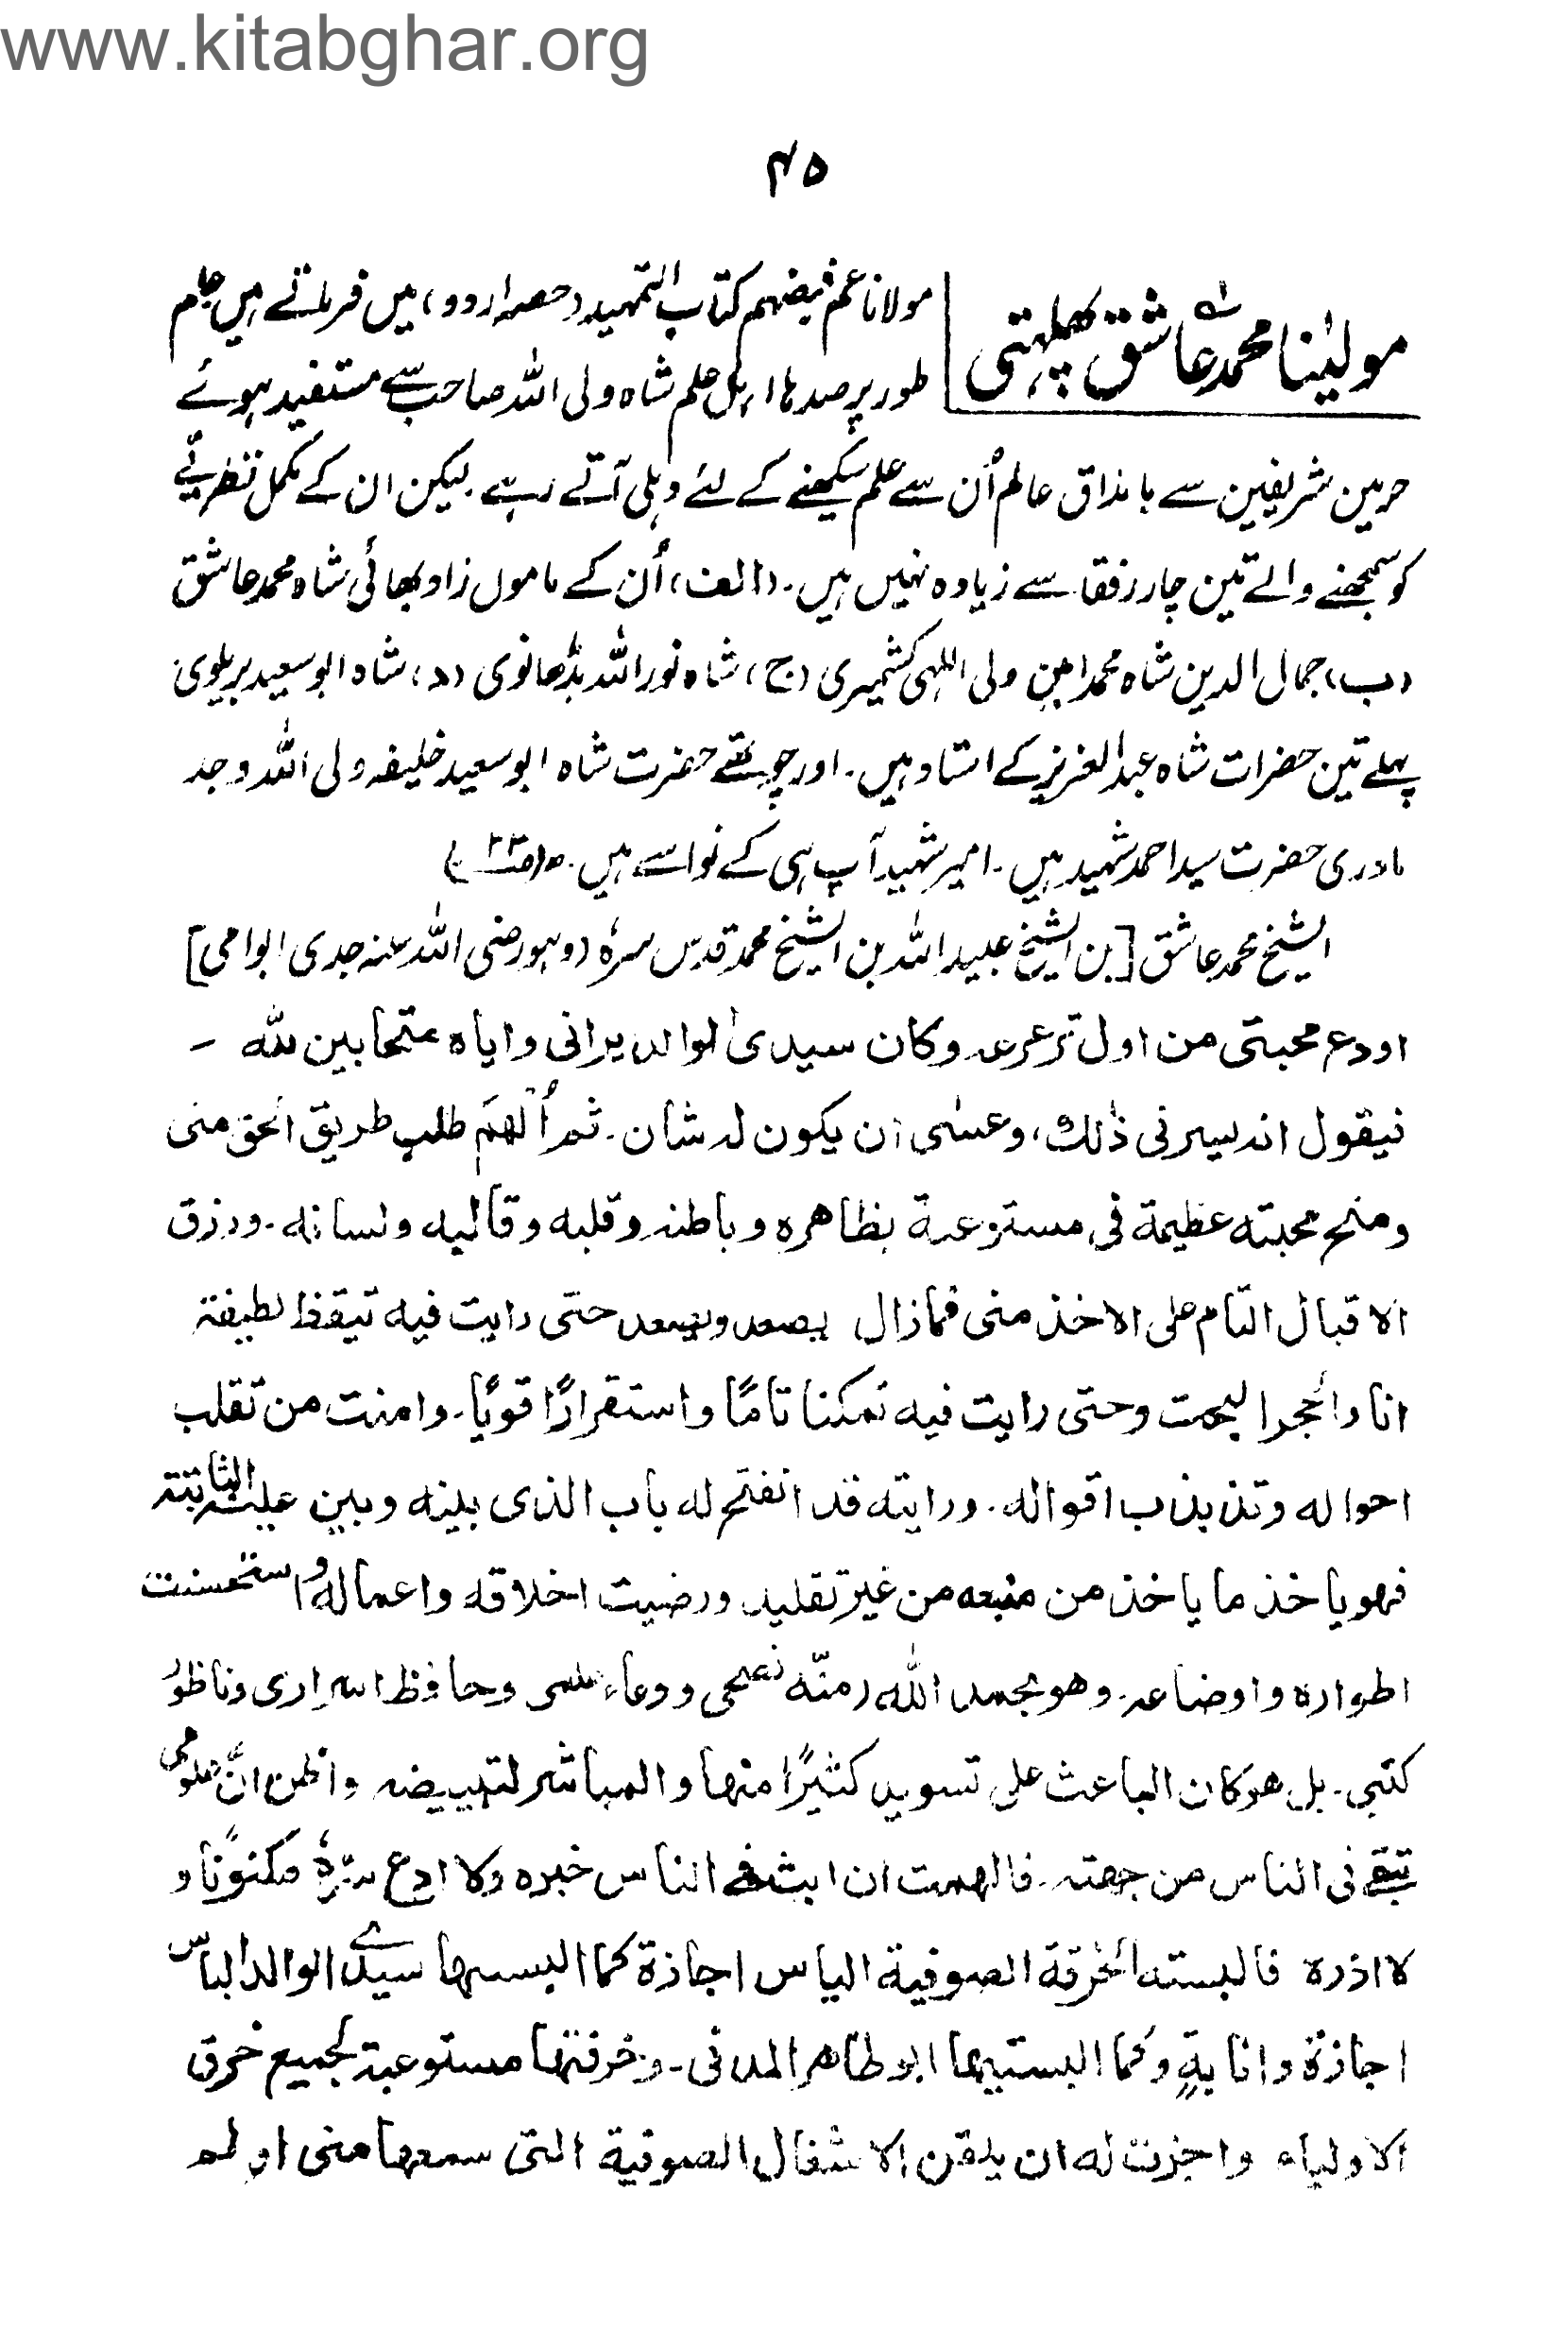 www.kitabghar.org
۴۵
مولٰینا محمد عاشق پھلہتی
مولانا عم فیضہم کتاب التمہید (حصہ اردو) میں فرماتے ہیں عام
طور پر صدہا اہل علم شاہ ولی اللہ صاحب سے مستفید ہوئے
حرمین شریفین سے با مذاق عالم اُن سے علم سیکھنے کے لئے دہلی آتے رہے۔ لیکن ان کے مکمل نظریئے
کو سمجھنے والے تین چار رفقا سے زیادہ نہیں ہیں۔ (الف) اُن کے ماموں زاد بھائی شاہ محمد عاشق
(ب) جمال الدین شاہ محمد امین ولی اللہی کشمیری (ج) شاہ نور اللہ بڈھانوی (د) شاہ ابو سعید بریلوی
پہلے تین حضرات شاہ عبد العزیز کے استاد ہیں۔ اور چوتھے حضرت شاہ ابو سعید خلیفہ ولی اللہ وجد
مادری حضرت سید احمد شہید ہیں۔ امیر شہید آپ ہی کے نواسے ہیں۔
الشیخ محمد عاشق [بن الشیخ عبید اللہ بن الشیخ محمد قدس سرہٗ (وہو رضی اللہ عنہ جدی ابو امی]
اودع محبتی من اول ترعرعہ وکان سیدی الوالد یرانی وایاہ متحابین للہ –
فیقول انہ لیسر فی ذٰلک، وعسٰی ان یکون لہ شان۔ ثم اُلھِمَ طلب طریق الحق منی
ومنح محبتہ عظیمة فی مستوعبة بظاھرہ و باطنہ وقلبه و قالبه ولسانه۔ ورزق
الاقبال التام علی الاخذ منی فمازال یصعد ویصعد حتی رایت فیه تیقظ لطیفة
انا والحجر البحت وحتی رایت فیه تمکنا تامًا واستقرارًا قویًا۔ وامنت من تقلب
احواله وتذبذب اقواله۔ ورایته قد انفتح له باب الذی بینه وبین عینه الثابتة
فھو یاخذ ما یاخذ من منبعه من غیر تقلید ورضیت اخلاقه واعماله واستحسنت
اطوارہ واوضاعہ۔ وھو بحمد اللہ ومنّه نصحی ووعاء علمی وحافظ اسراری وناظورُ
کتبی۔ بل ھو کان الباعث علی تسوید کثیرًا منھا والمباشر لتبییضہ واظن انّ علومی
تبقی فی الناس من جھتہ۔ فالھمت ان ابث فی الناس خبرہ ولا ادع سرّہٗ مکنونًا و
لا اذرہ فالبسته الخرقة الصوفیة الباس اجازة کما البسھا سیدی الوالد الباس
اجازة وانابةٍ وکما البستیھا ابو طاھر المدنی۔ وخرقتھا مستوعبة لجمیع خرق
الاولیاء واجزت له ان یلقن الاشغال الصوفیة التی سمعھا منی او لم